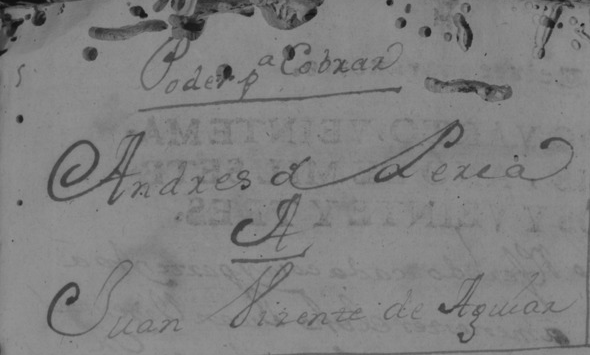 Poder pa Cobrar
Andres d Lexia
A
Juan Vizente de Aguiar